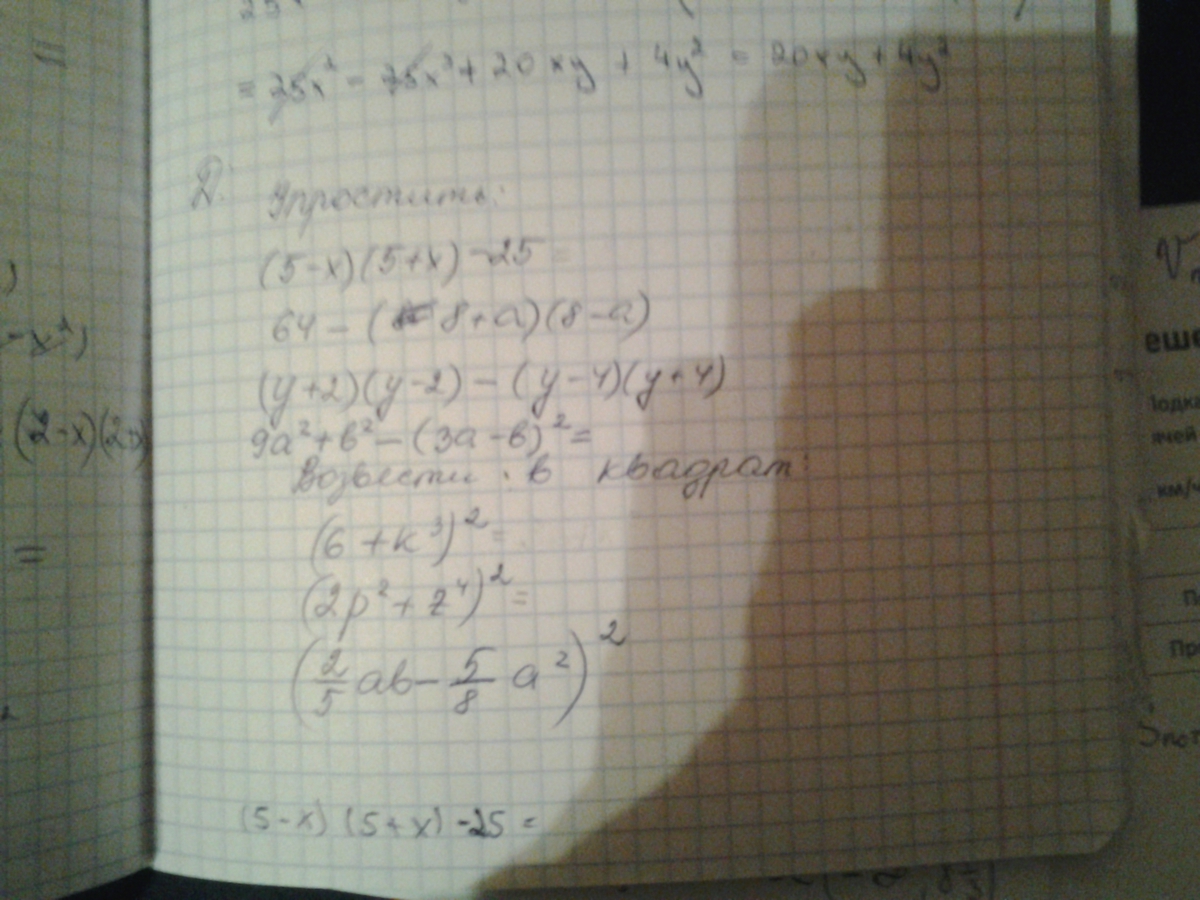 = 25x² - 25x² + 20xy + 4y² = 20xy + 4y²
Д. Упростить:
(5-x)(5+x) -25 =
64 - (8+a)(8-a)
(y+2)(y-2) - (y-4)(y+4)
9a²+b² - (3a-b)² =
Возвести в квадрат:
(6+k³)² =
(2p²+z⁴)² =
(2/5 ab - 5/8 a²)²
(5-x)(5+x) -25 =
-x²)
(2-x)(2
=
еше
ячей
км/ч